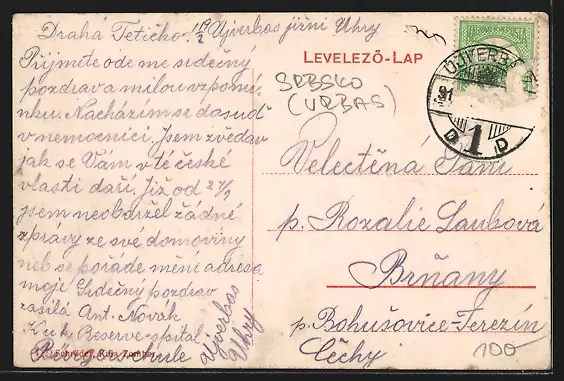 Drahá Tetičko. 1 19/2 Ujverbas jižní Uhry
Přijmite ode mne srdečný
pozdrav a milou vzpomín-
ku. Nacházím se dosud
v nemocnici. Jsem zvědav
jak se Vám v té české
vlasti daří. Již od 27/9
jsem neobdržel žádné
zprávy ze své domoviny
neb se pořáde mění adresa
moje Srdečný pozdrav
zasílá Ant. Novák
K. u k. Reserve-spital
Bürgerschule
Ujverbas
Uhry
LEVELEZŐ-LAP
SRBSKO
(VRBAS)
ÚJVERBÁ
D 1 D
Velectěná Paní
p. Rozalie Laubová
Brňany
p. Bohušovice-Terezín
Čechy
100